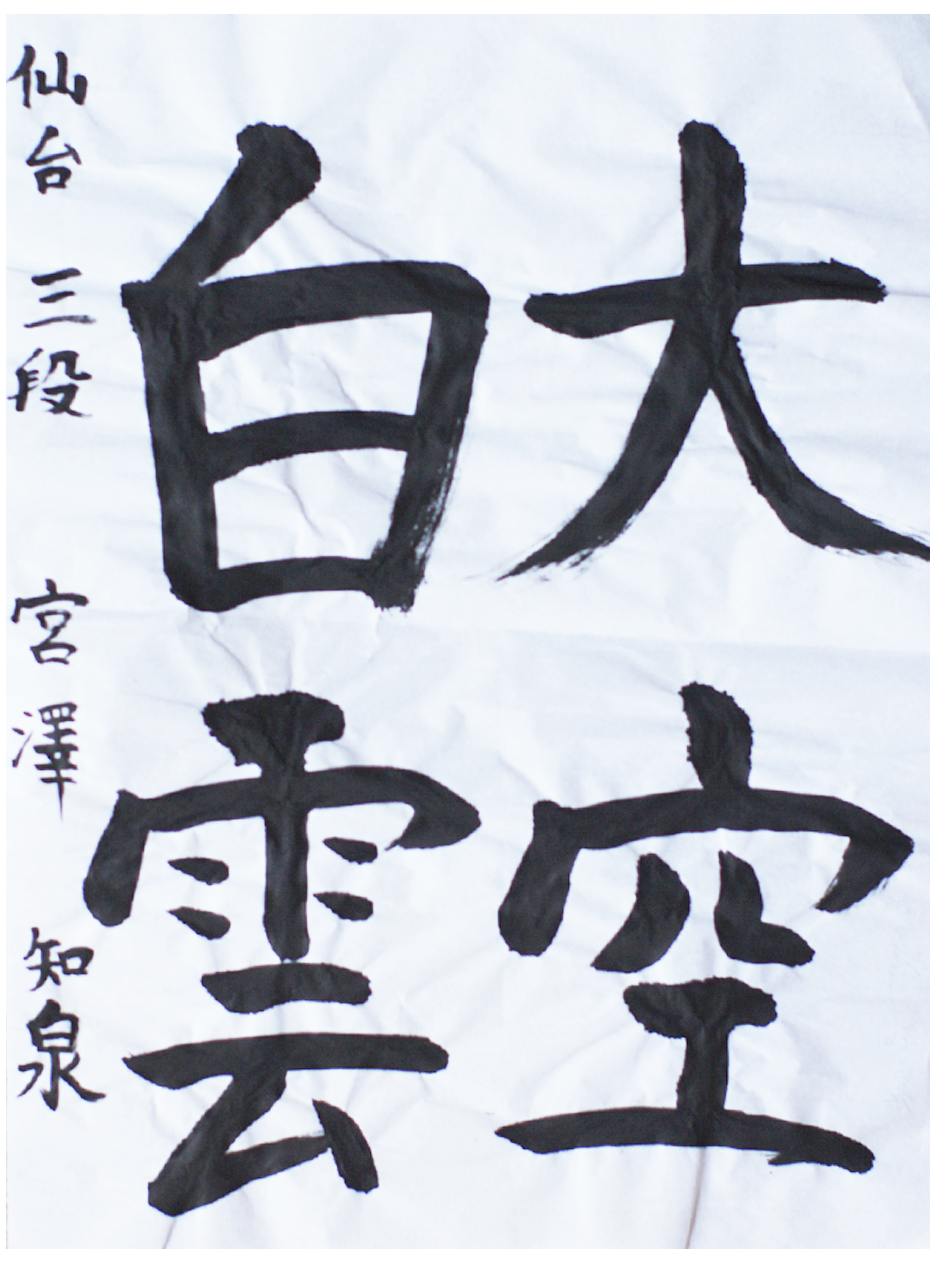 大空
白雲
仙台 三段 宮澤 知泉